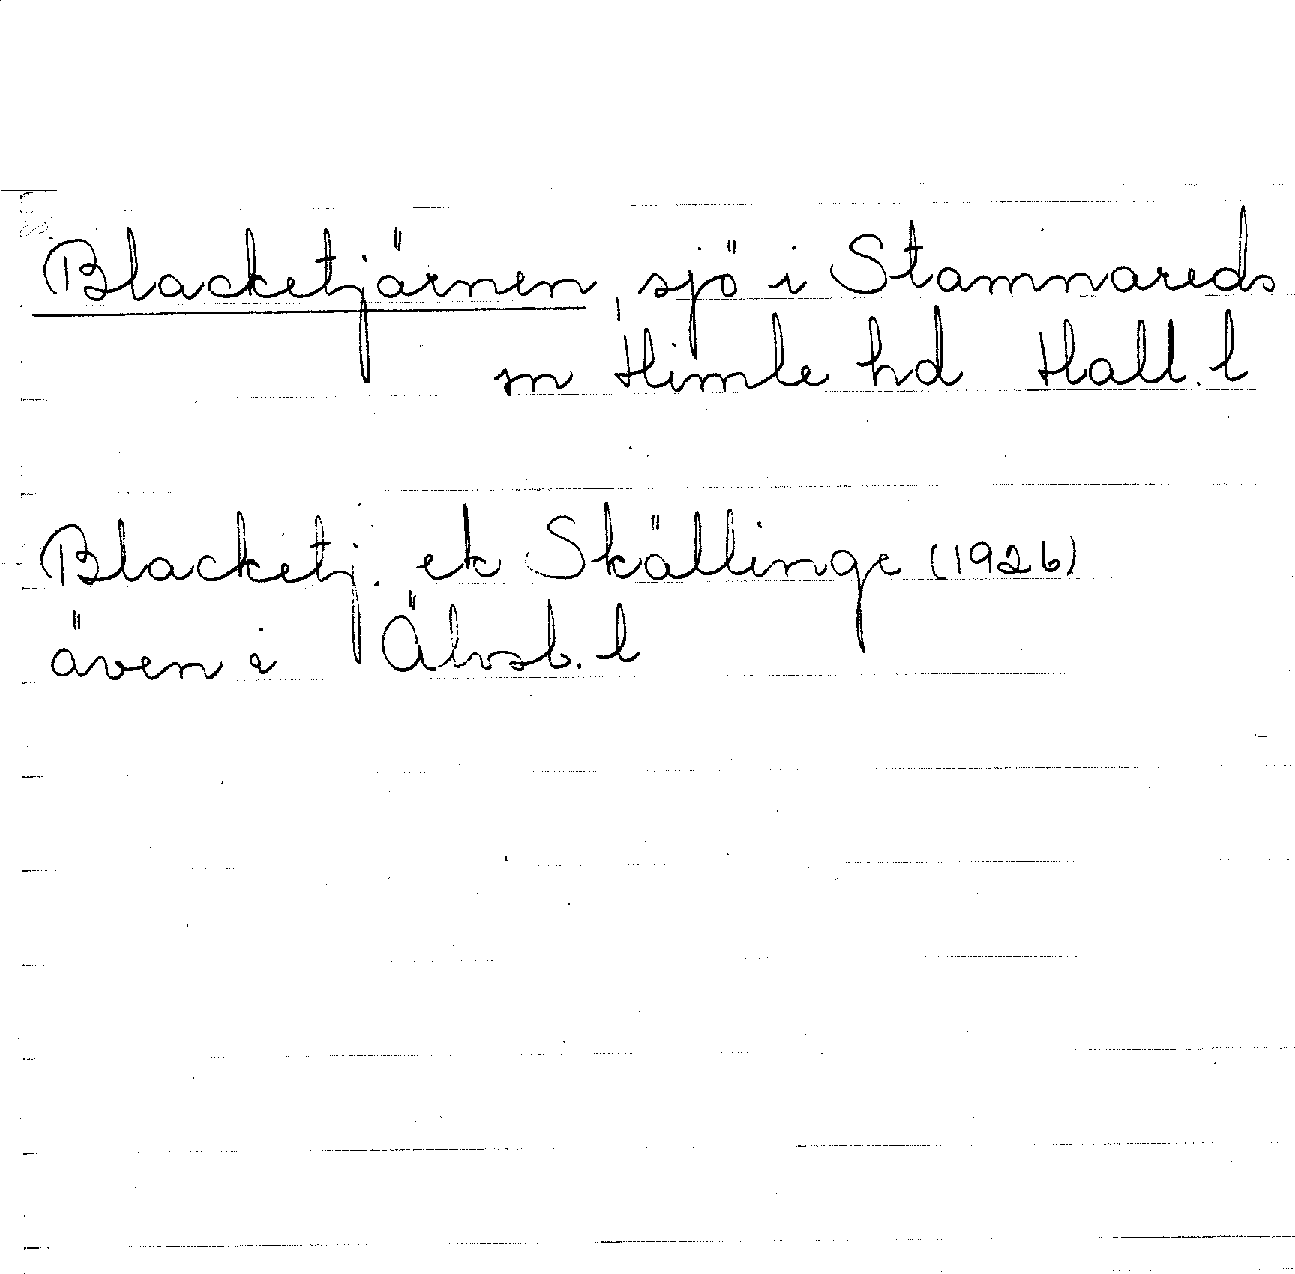 Blacketjärnen, sjö i Stamnareds
sn Himle hd Hall. l
Blacketj. ek Skällinge (1926)
även i Älvsb. l